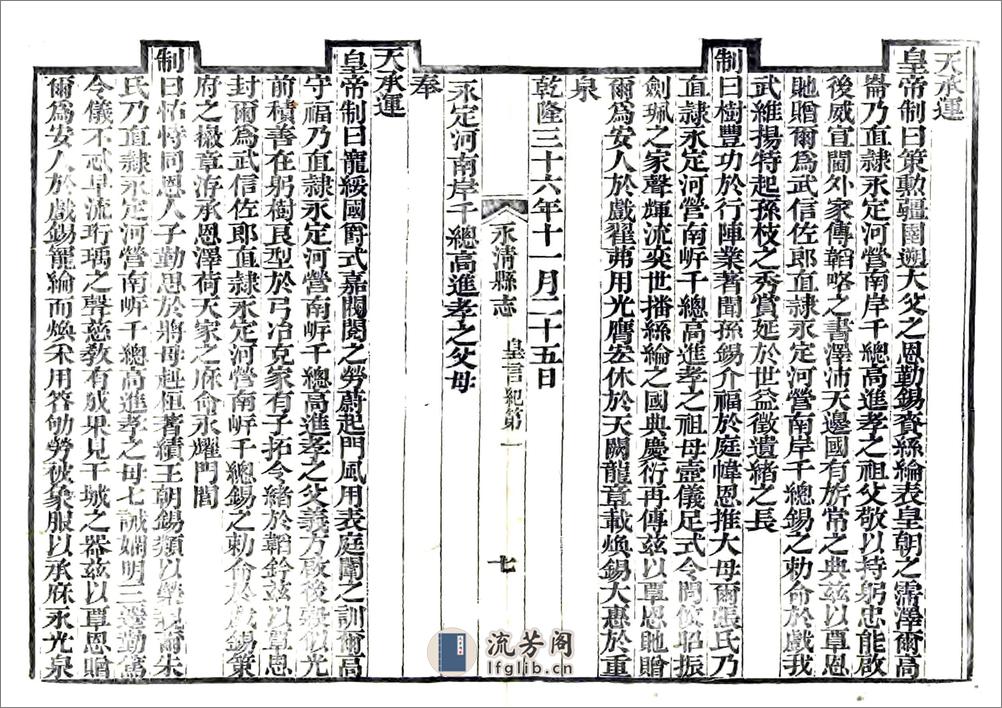 天承運
皇帝制曰策勲疆圉遡大父之恩勤錫賚絲綸表皇朝之霈澤爾高
崙乃直隸永定河營南岸千總高進孝之祖父敬以持躬忠能啟
後威宣閫外家傳韜略之書澤沛天邊國有旂常之典兹以覃恩
貤贈爾爲武信佐郎直隸永定河營南岸千總錫之勅命於戲我
武維揚特起孫枝之秀賞延於世益徵遺緒之長
制曰樹豐功於行陣業著聞孫錫介福於庭幃恩推大母爾張氏乃
直隸永定河營南岸千總高進孝之祖母壼儀足式令問攸昭振
劍珮之家聲輝流奕世播絲綸之國典慶衍再傳兹以覃恩貤贈
爾爲安人於戲翟茀用光膺宏休於天闕龍章載煥錫大惠於重
泉
乾隆三十六年十一月二十五日
永清縣志 皇言紀第一 七
永定河南岸千總高進孝之父母
奉
天承運
皇帝制曰寵綏國爵式嘉閥閱之勞蔚起門風用表庭闈之訓爾高
守福乃直隸永定河營南岸千總高進孝之父義方啟後穀似光
前積善在躬樹良型於弓冶克家有子拓令緒於韜鈐兹以覃恩
封爾爲武信佐郎直隸永定河營南岸千總錫之勅命於戲錫策
府之徽章洊承恩澤荷天家之庥命永耀門閭
制曰怙恃同恩人子勤思於將母赳桓著績王朝錫類以榮親爾朱
氏乃直隸永定河營南岸千總高進孝之母七誡嫻明三遷勤篤
令儀不忒早流珩瑀之聲慈教有成果見干城之器兹以覃恩贈
爾爲安人於戲錫龍綸而煥采用答劬勞被象服以承庥永光泉
流芳阁
lfglib.cn